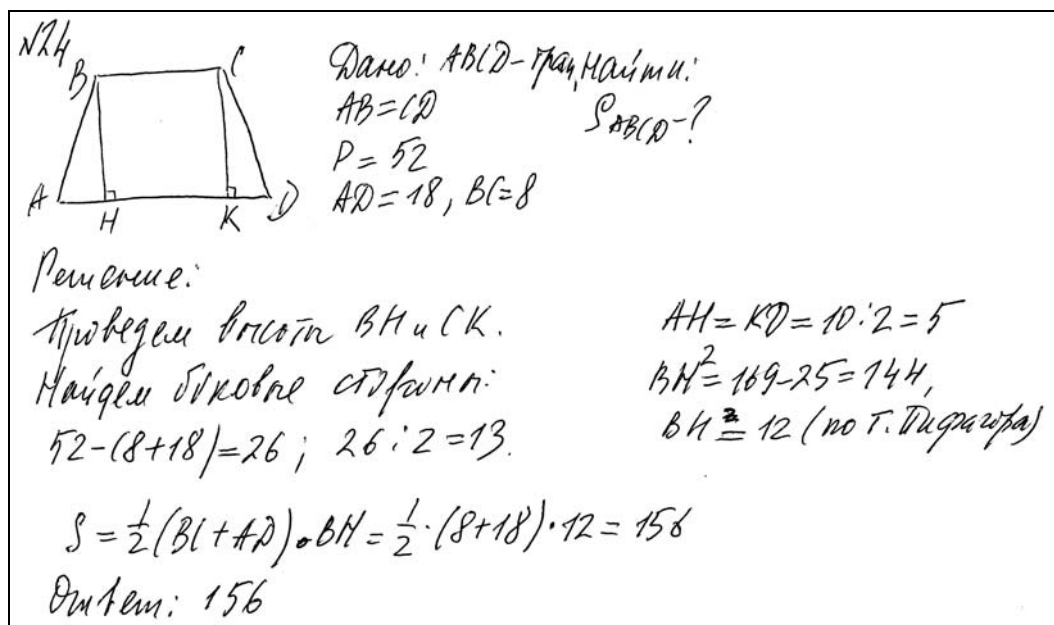 №24
B C
A H K D
Дано: ABCD-трап, Найти:
AB=CD SABCD-?
P=52
AD=18, BC=8
Решение:
Проведем высоты BH и CK.
Найдем боковые стороны:
52-(8+18)=26; 26:2=13.
AH=KD=10:2=5
BH²=169-25=144,
BH = 12 (по т. Пифагора)
S=½(BC+AD)•BH=½·(8+18)·12=156
Ответ: 156